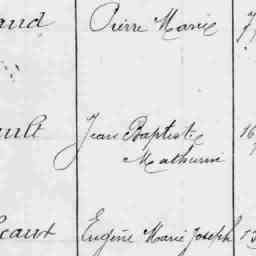 aud Pierre Marie
ault Jean Baptiste 16
Mathurin
Eugène Marie Joseph 13